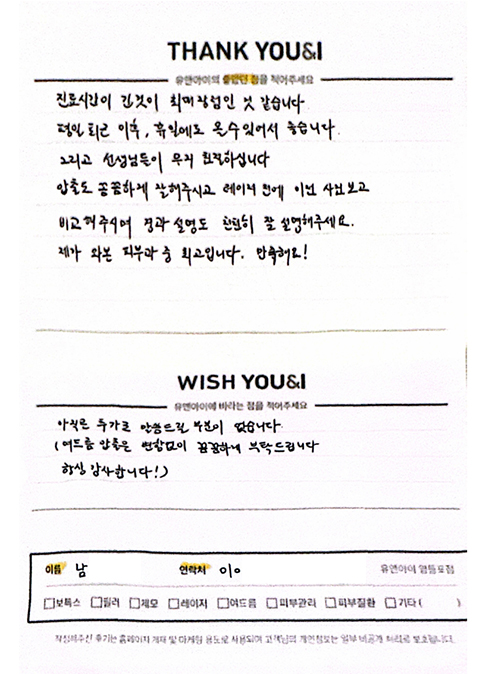 THANK YOU&I
유앤아이의 좋았던 점을 적어주세요
진료시간이 긴것이 최대장점인 것 같습니다.
평일 퇴근 이후, 휴일에도 올수 있어서 좋습니다.
그리고 선생님들이 무지 친절하십니다
압출도 꼼꼼하게 잘해주시고 레이저 전에 이번 사진보고
비교해주시며 경과 설명도 천천히 잘 설명해주세요.
제가 와본 피부과 중 최고입니다. 만족해요!
WISH YOU&I
유앤아이에 바라는 점을 적어주세요
아직은 추가로 말씀드릴 부분이 없습니다.
(여드름 압출은 변함없이 꼼꼼하게 부탁드립니다
항상 감사합니다!)
이름 남 연락처 010 유앤아이 영등포점
보톡스 필러 제모 레이저 여드름 피부관리 피부질환 기타( )
작성해주신 후기는 홈페이지 게재 및 마케팅 용도로 사용되며 고객님의 개인정보는 일부 비공개 처리로 보호됩니다.